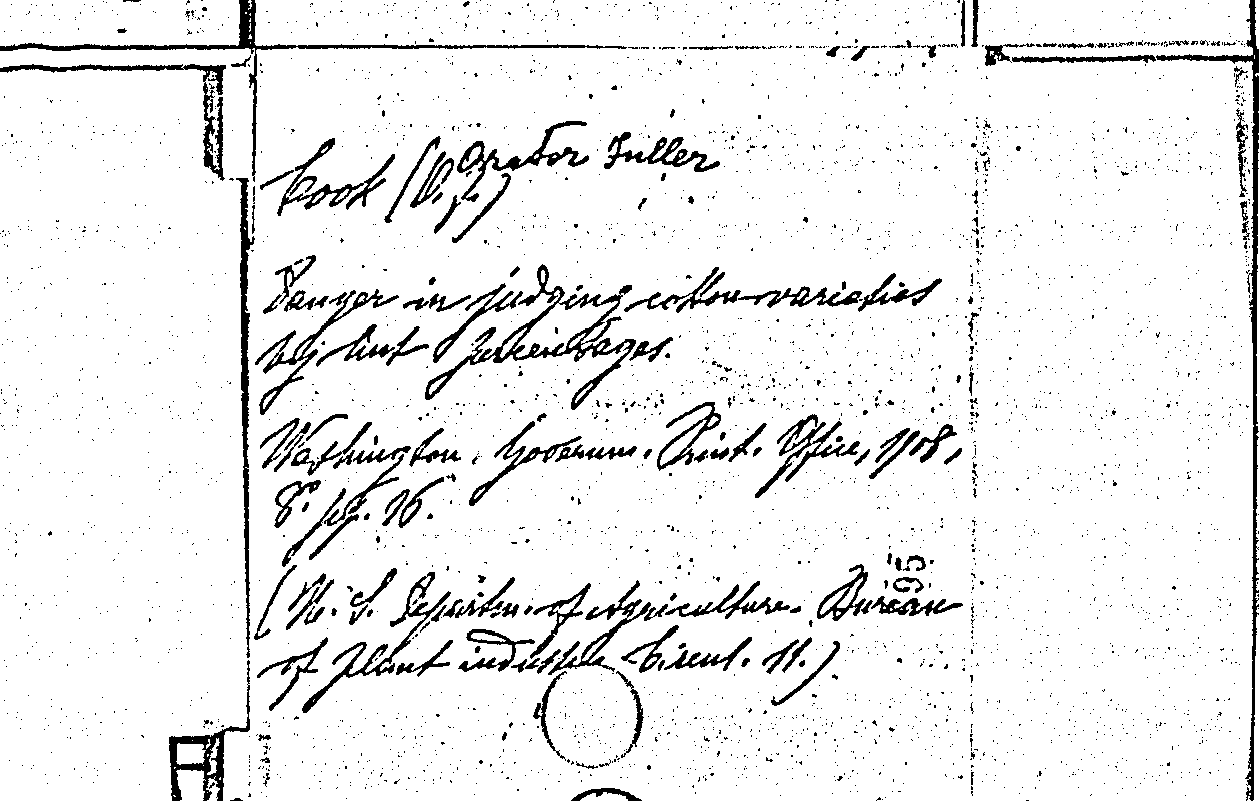 Cook (O. F.) Orator Fuller
Danger in judging cotton varieties
by lint percentages.
Washington, Governm. Print. Office, 1908,
8° pp. 16.
95
(U. S. Departm. of Agriculture. Bureau
of plant industrie Circul. 11.)